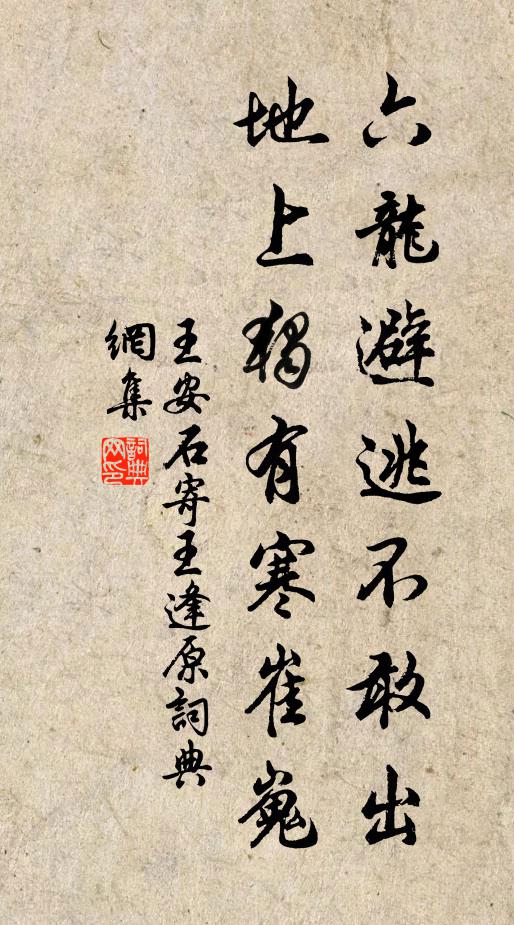 六龍避逃不敢出
地上獨有寒崔嵬
王安石寄王逢原詞典
網集
詞典網印